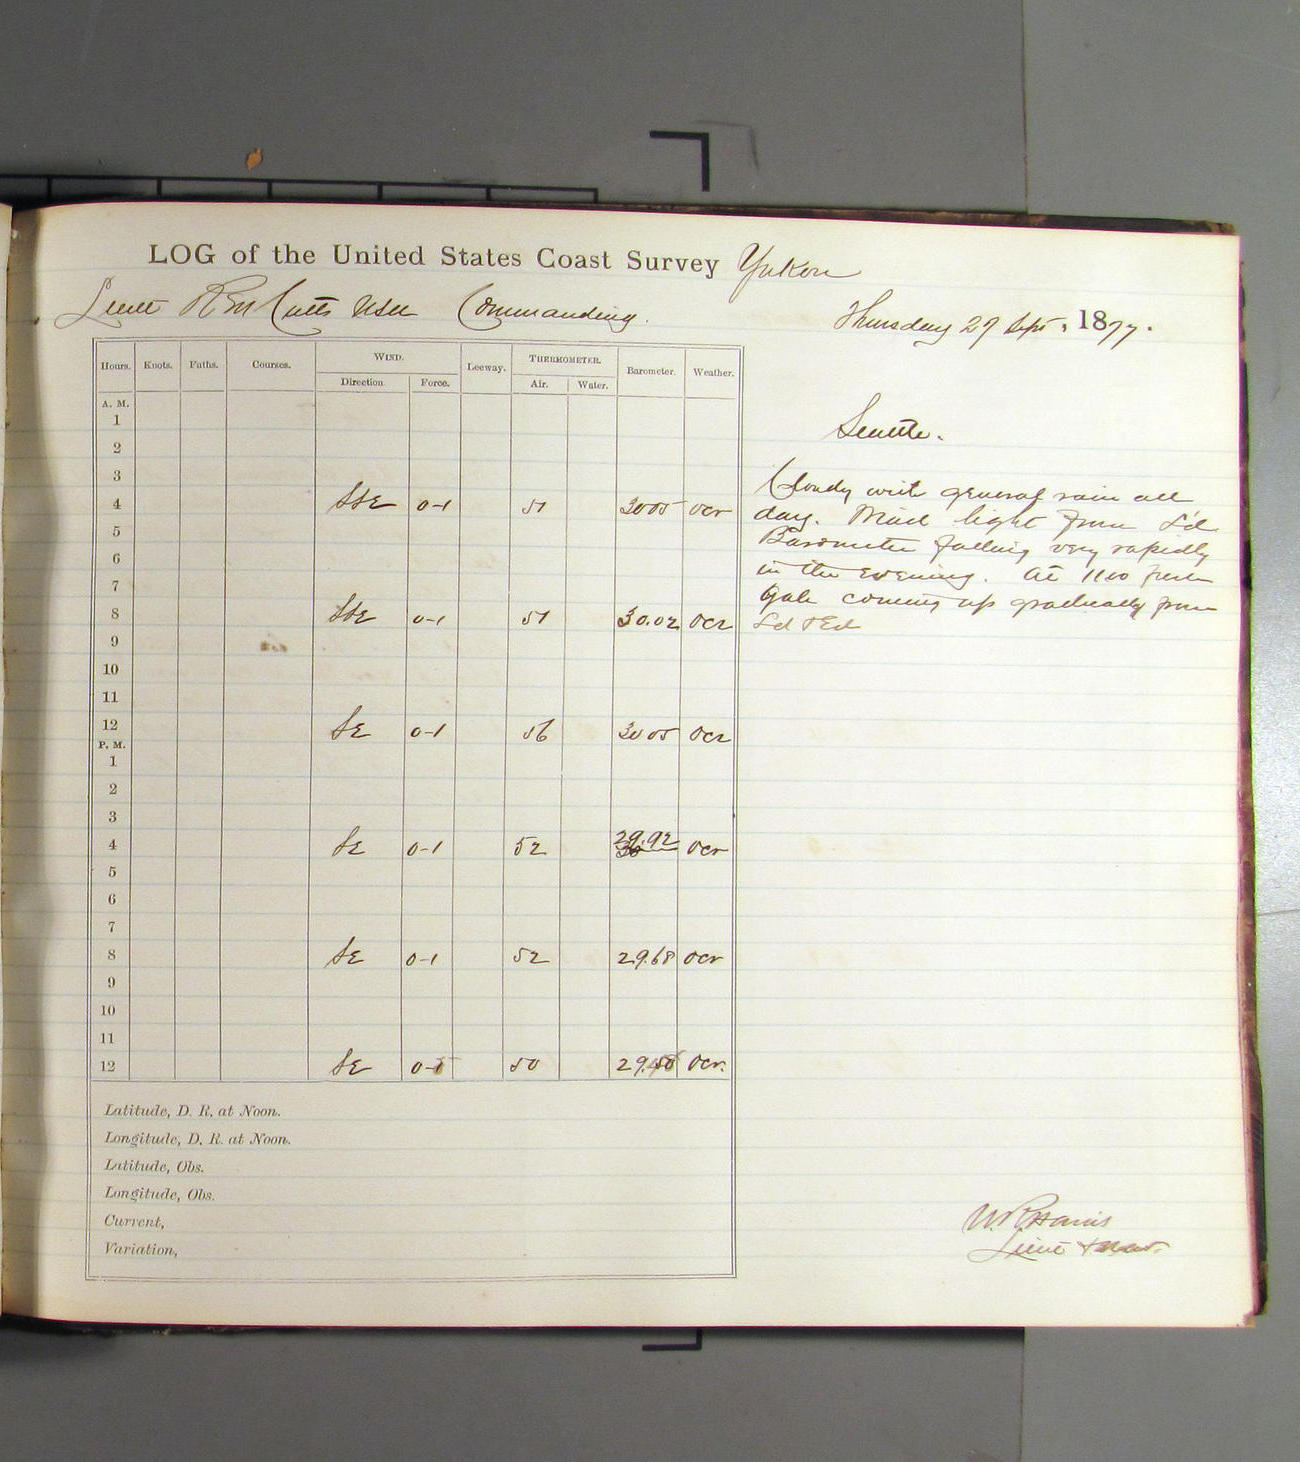 LOG of the United States Coast Survey Yukon
Lieut R M Cutts USN Commanding.
Thursday 27 Sept. 1877.
Hours. Knots. Faths. Courses. WIND. Leeway. THERMOMETER. Barometer. Weather.
Direction. Force. Air. Water.
A. M.
1
2
3
4 SSE 0-1 51 3005 ocr
5
6
7
8 SSE 0-1 51 30.02 ocr
9
10
11
12 SE 0-1 56 3005 ocr
P. M.
1
2
3
4 SE 0-1 52 29.92 ocr
5
6
7
8 SE 0-1 52 29.68 ocr
9
10
11
12 SE 0- 50 29.50 ocr.
Latitude, D. R. at Noon.
Longitude, D. R. at Noon.
Latitude, Obs.
Longitude, Obs.
Current,
Variation,
Seattle.
Cloudy with general rain all
day. Wind light from S'd
Barometer falling very rapidly
in the evening. At 1100 fresh
Gale coming up gradually from
Sd & Ed
Lieut